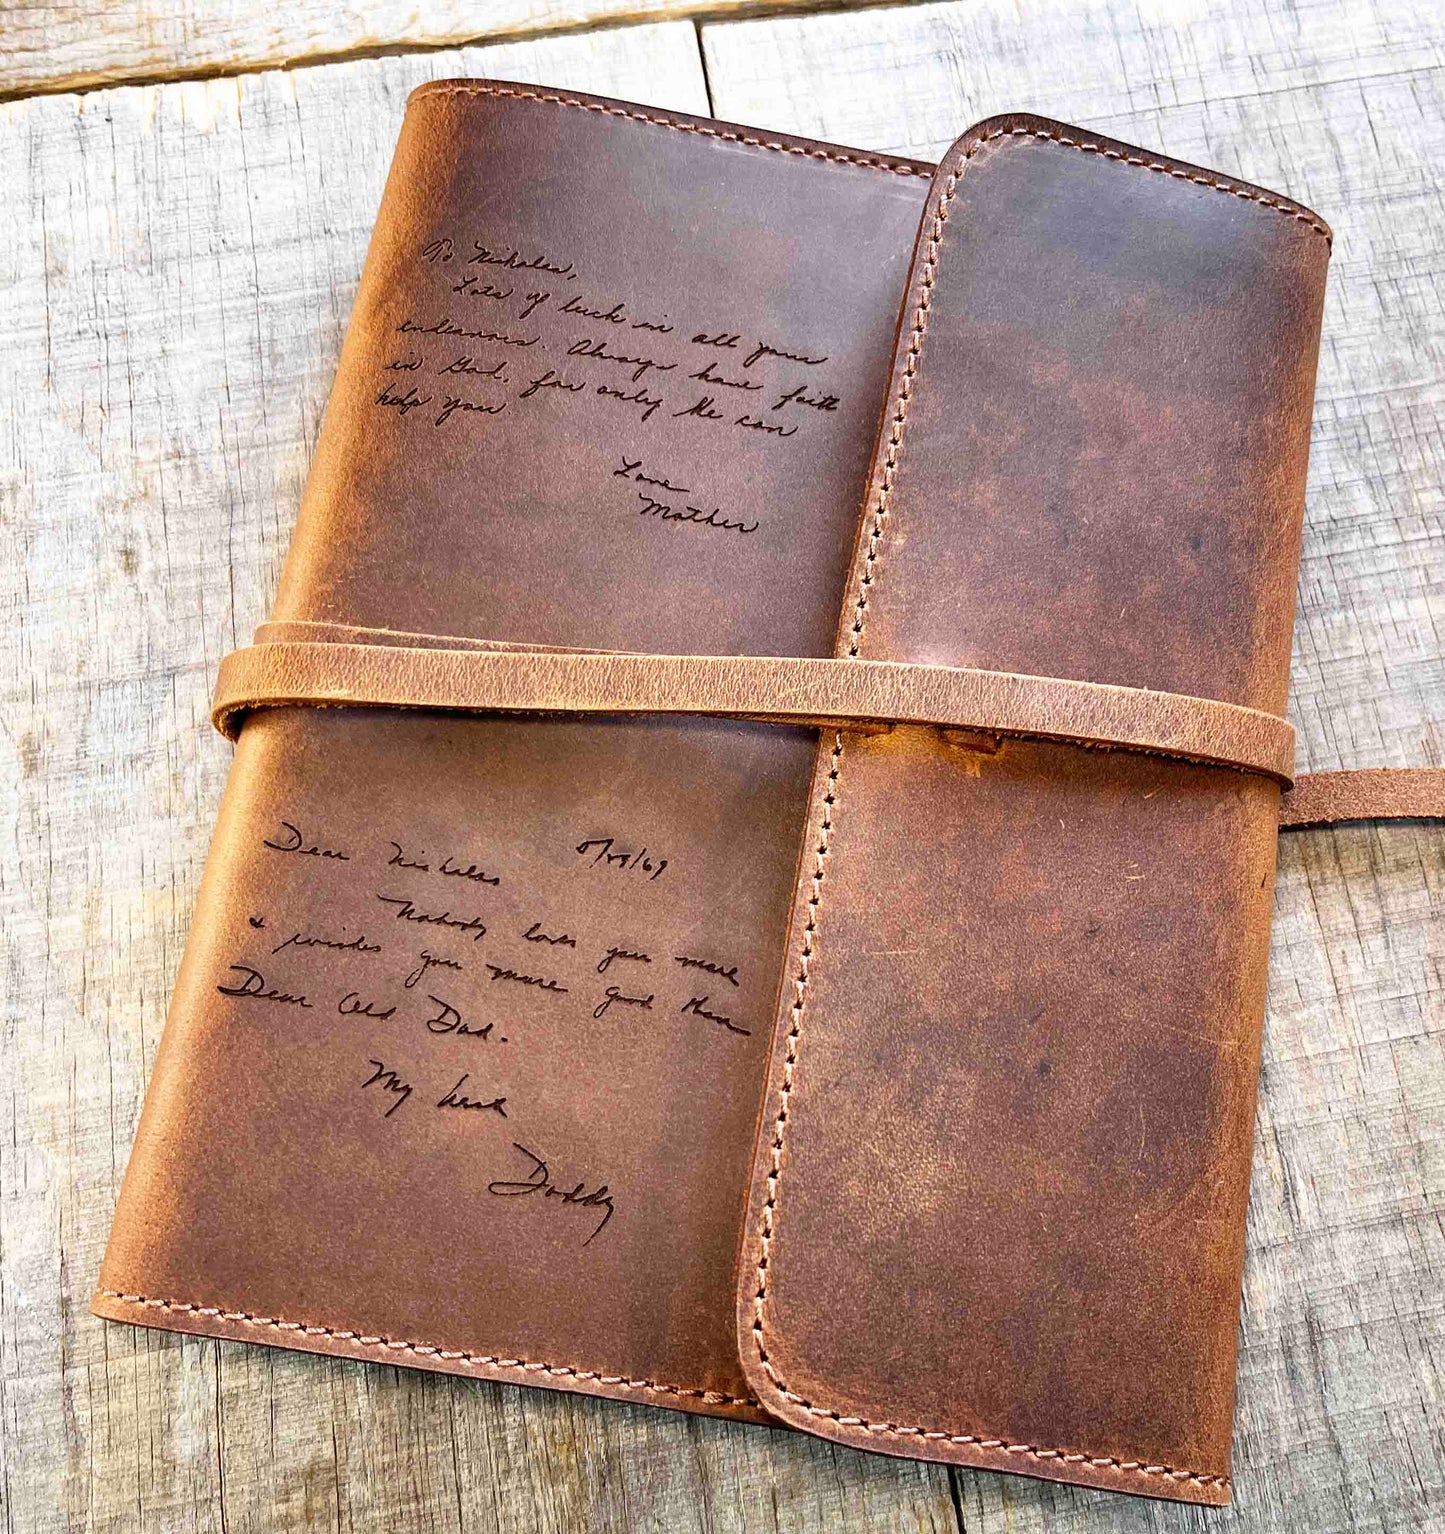 To Nicholas,
Lots of luck in all your
endeavors. Always have faith
in God, for only He can
help you
Love
Mother
Dear Nicholas
Nobody loves you more
& wishes you more good than
Dear Old Dad.
My best
Daddy